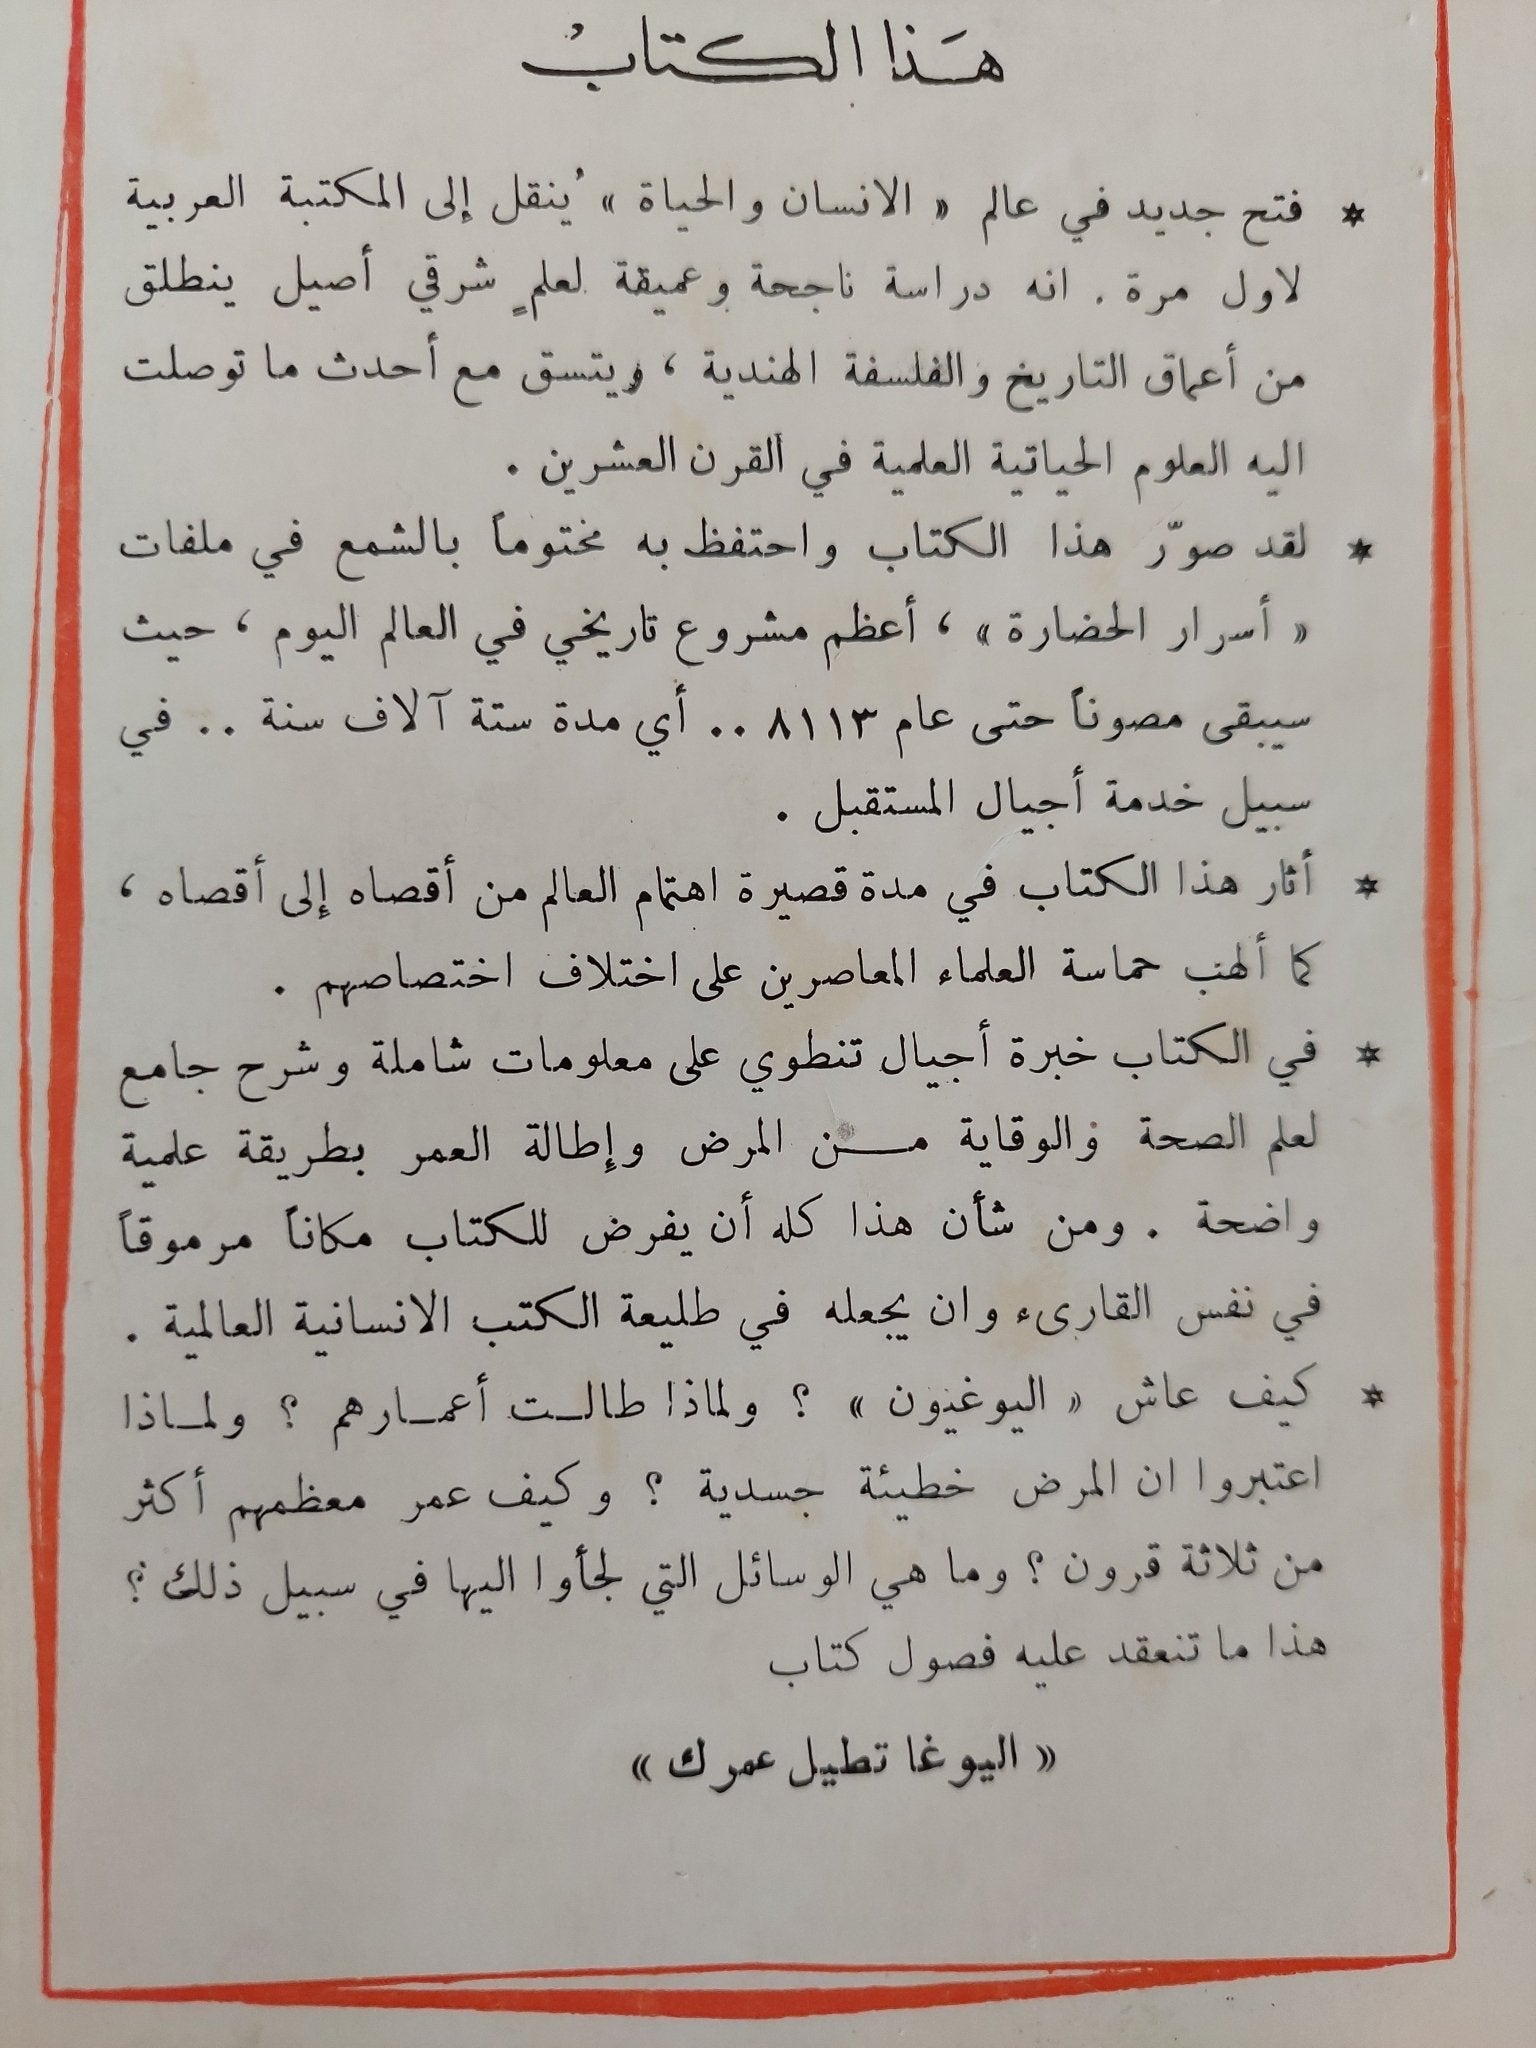 هَذا الكتابُ
* فتح جديد في عالم « الانسان والحياة » يُنقل إلى المكتبة العربية
لاول مرة . انه دراسة ناجحة وعميقة لعلمٍ شرقي أصيل ينطلق
من أعماق التاريخ والفلسفة الهندية ، ويتسق مع أحدث ما توصلت
اليه العلوم الحياتية العلمية في القرن العشرين .
* لقد صوّر هذا الكتاب واحتفظ به مختوماً بالشمع في ملفات
« أسرار الحضارة » ، أعظم مشروع تاريخي في العالم اليوم ، حيث
سيبقى مصوناً حتى عام ٨١١٣ .. أي مدة ستة آلاف سنة .. في
سبيل خدمة أجيال المستقبل .
* أثار هذا الكتاب في مدة قصيرة اهتمام العالم من أقصاه إلى أقصاه ،
كما ألهب حماسة العلماء المعاصرين على اختلاف اختصاصهم .
* في الكتاب خبرة أجيال تنطوي على معلومات شاملة وشرح جامع
لعلم الصحة والوقاية مــن المرض وإطالة العمر بطريقة علمية
واضحة . ومن شأن هذا كله أن يفرض للكتاب مكاناً مرموقاً
في نفس القارىء وان يجعله في طليعة الكتب الانسانية العالمية .
* كيف عاش « اليوغيون » ؟ ولماذا طالــت أعمــارهم ؟ ولمــاذا
اعتبروا ان المرض خطيئة جسدية ؟ وكيف عمر معظمهم أكثر
من ثلاثة قرون ؟ وما هي الوسائل التي لجأوا اليها في سبيل ذلك ؟
هذا ما تنعقد عليه فصول كتاب
« اليوغا تطيل عمرك »